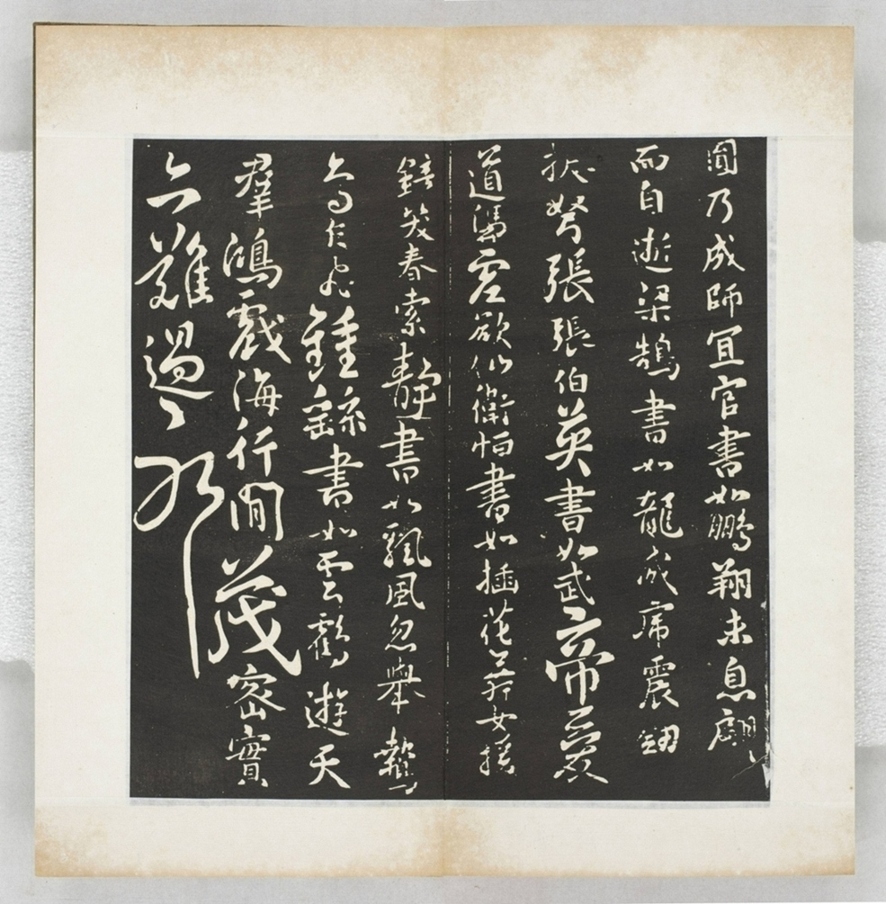 圓乃成師宜官書如鵬翔未息翩
而自逝梁鵠書如龍威虎震劍
拔弩張張伯英書如武帝愛
道憑虛欲仙衛恒書如插花美女援
鏡笑春索靜書如飄風忽舉鷙
鳥乍飛鍾繇書如雲鶴遊天
羣鴻戲海行間茂密實
亦難過